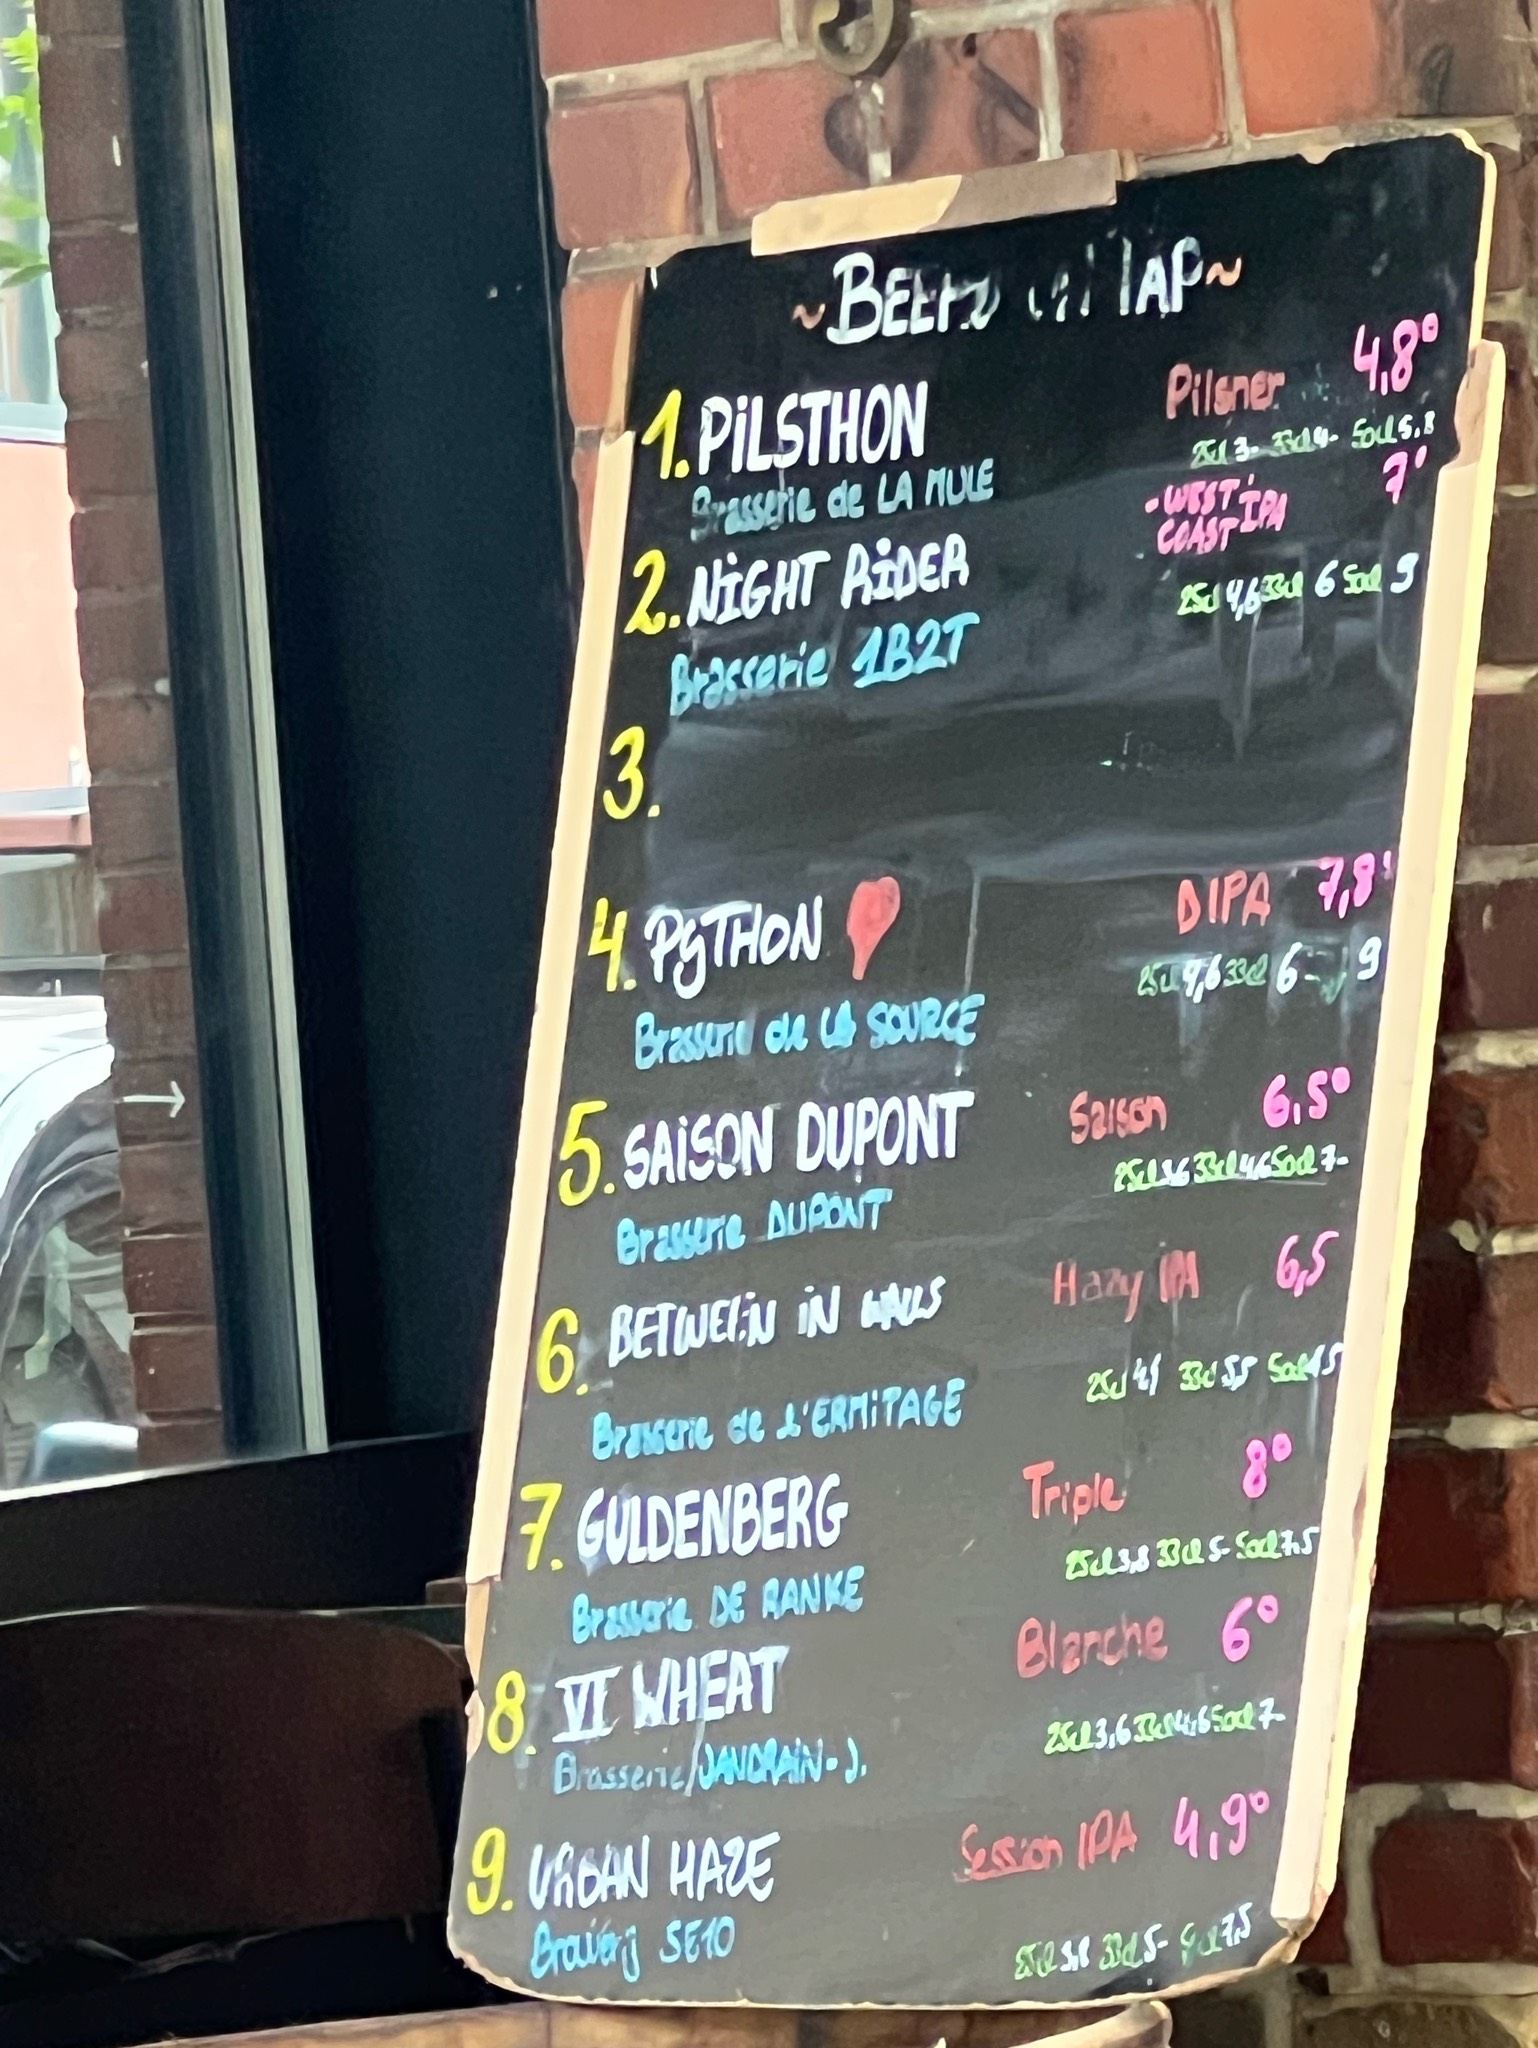 ~BEERS ON TAP~
1. PiLSTHON Pilsner 4,8°
Brasserie de LA MULE 25cl 3- 33cl 4- 50cl 5,8
2. NiGHT RiDER -WEST COAST IPA 7°
Brasserie 1B2T 25cl 4,6 33cl 6 50cl 9
3.
4. PyTHON DIPA 7,8°
Brasserie de LA SOURCE 25cl 4,6 33cl 6 9
5. SAiSON DUPONT Saison 6,5°
Brasserie DUPONT 25cl 3,6 33cl 4,6 50cl 7-
6. BETWEEN iN WALLS Hazy IPA 6,5
Brasserie de L'ERMiTAGE 25cl 33cl 5,5 50cl
7. GULDENBERG Triple 8°
Brasserie DE RANKE 25cl 3,8 33cl 5- 50cl 7,5
8. VI WHEAT Blanche 6°
Brasserie/JANDRAIN-J. 25cl 3,6 33cl 4,6 50cl 7-
9. URBAN HAZE Session IPA 4,9°
SE10 25cl 3,8 33cl 5- 7,5